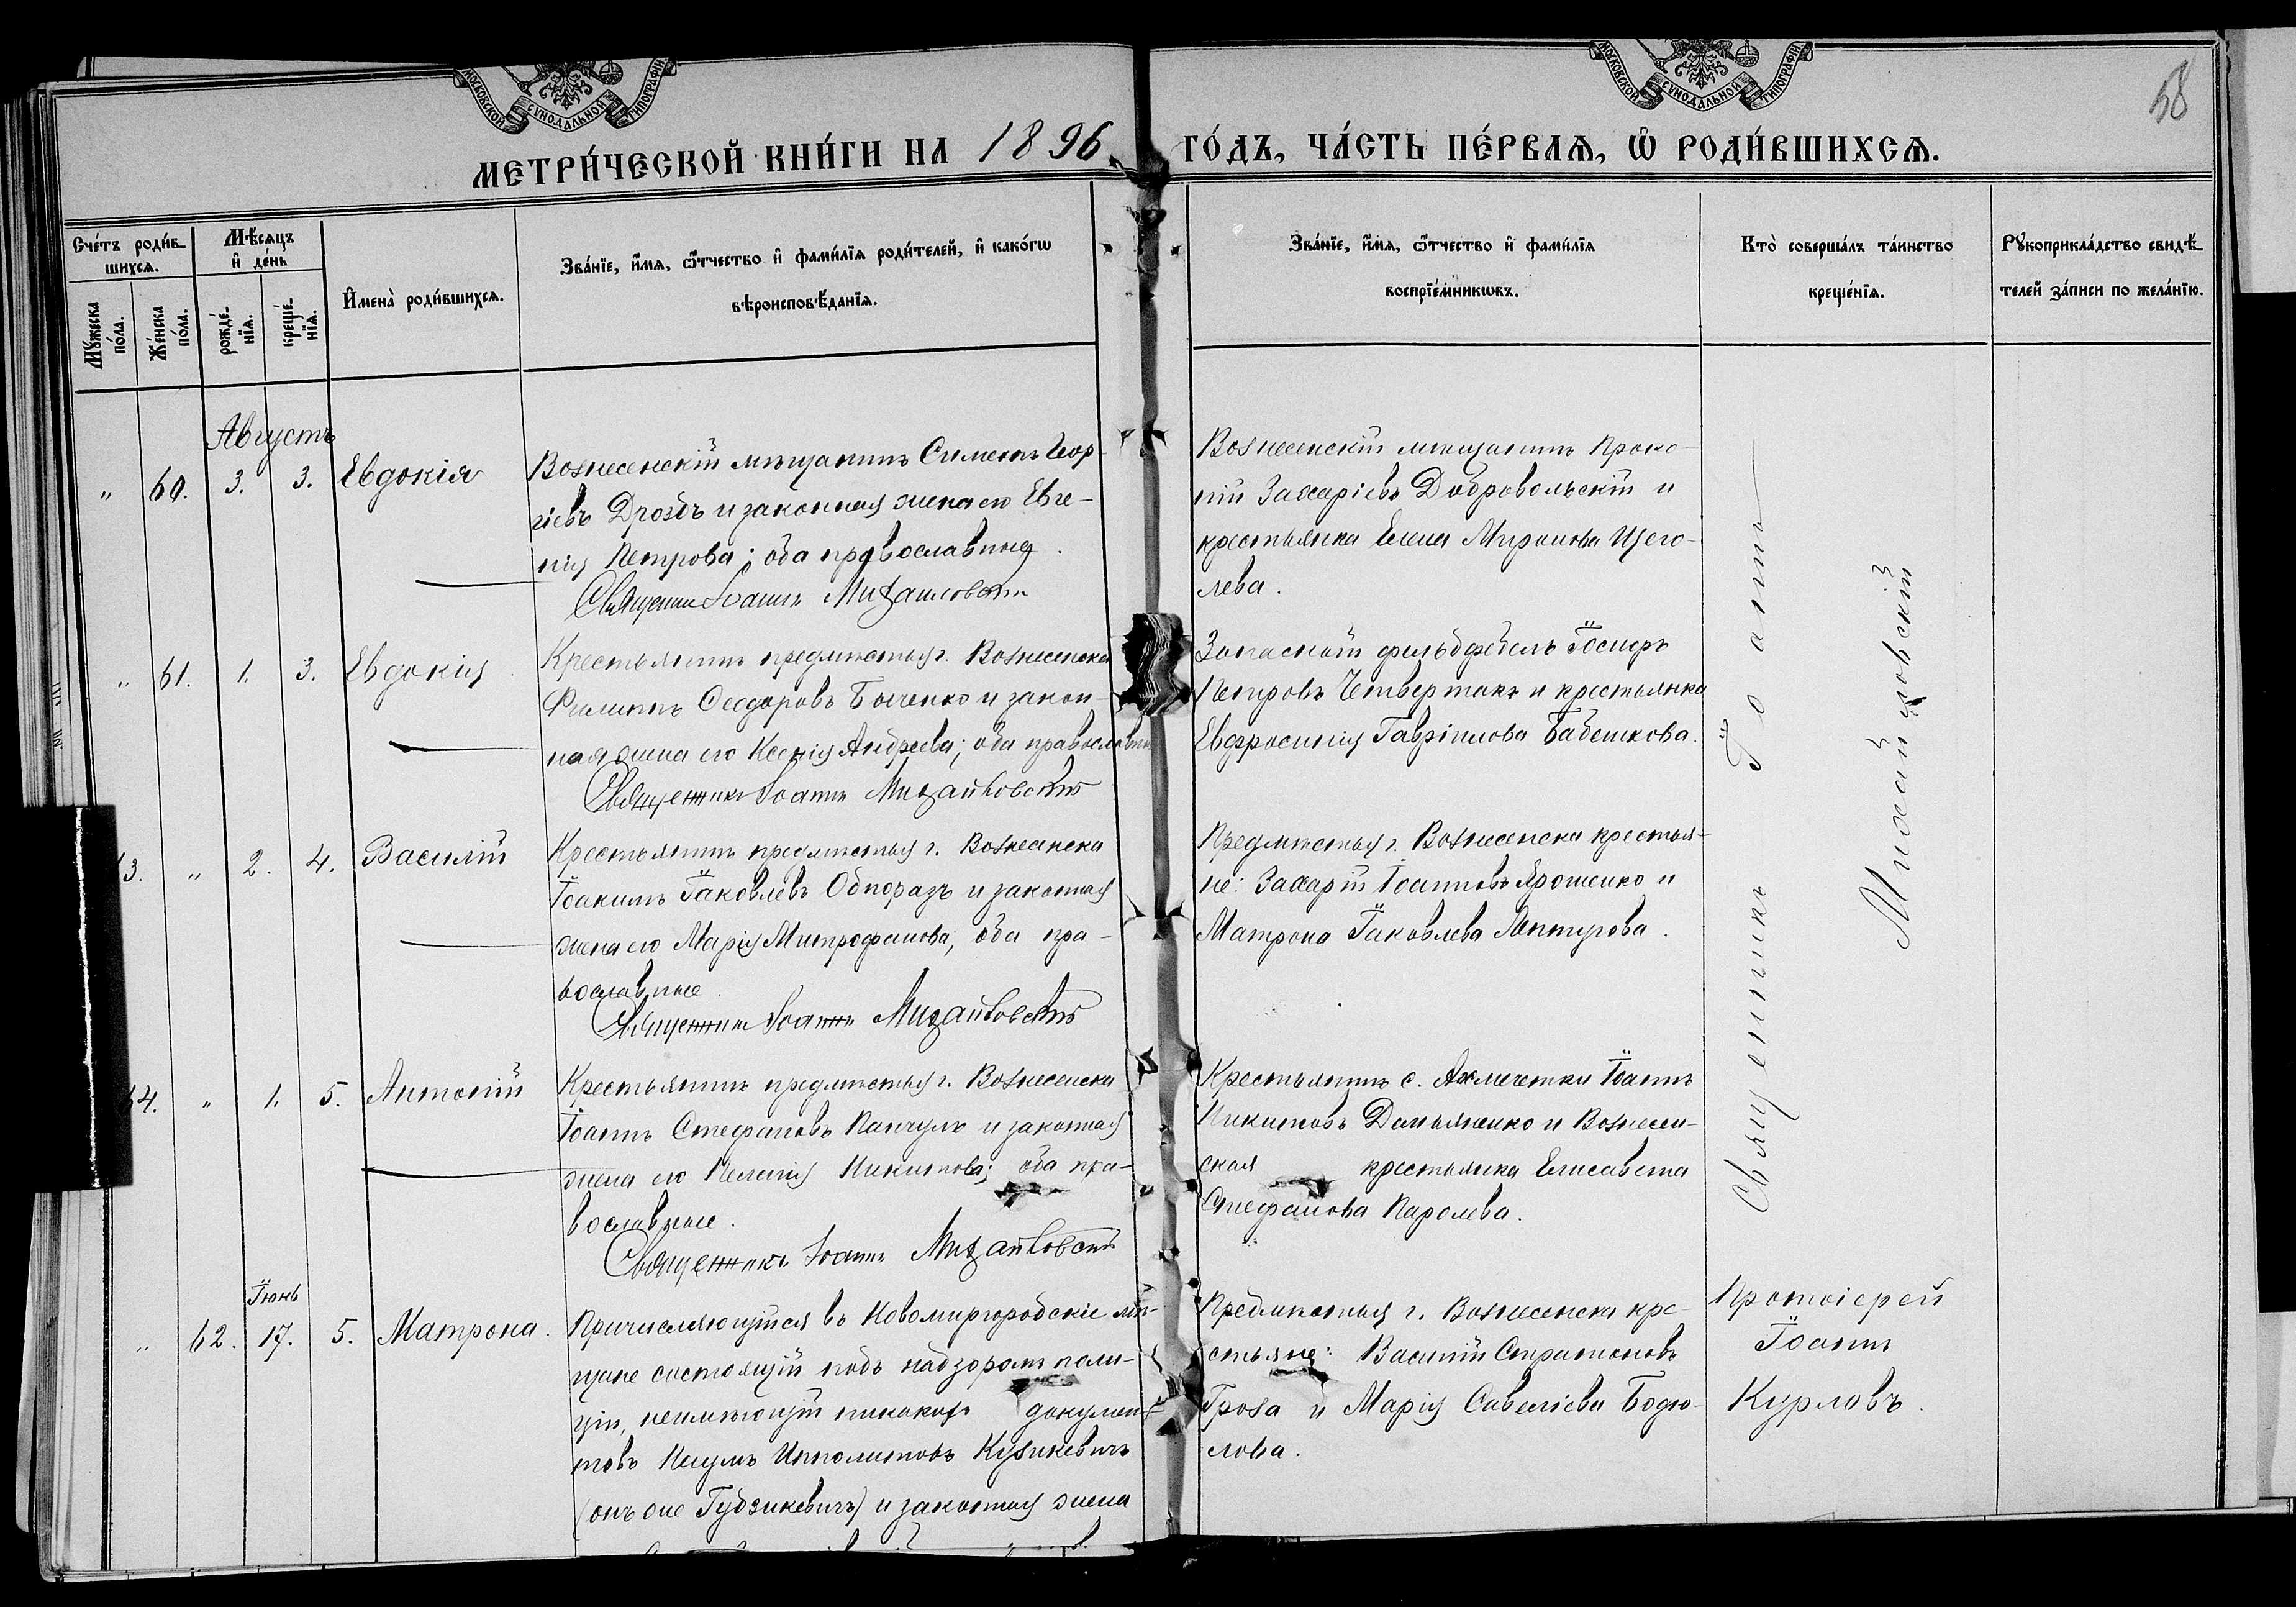 МОСКОВСКОЙ СѴНОДАЛЬНОЙ ТИПОГРАФІИ
МОСКОВСКОЙ СѴНОДАЛЬНОЙ ТИПОГРАФІИ
58
МЕТРИ́ЧЕСКОЙ КНИ́ГИ НА 1896 ГО́ДЪ, ЧА́СТЬ ПЕ́РВАѦ, Ѡ РОДИ́ВШИХСѦ.
Сче́тъ роди́в-
шихсѧ.
Мꙋ́жеска
по́ла.
Же́нска
по́ла.
Мѣ́сѧцъ
и де́нь
рожде́-
нїѧ.
креще́-
нїѧ.
Имена̀ роди́вшихсѧ.
Зва́нїе, и́мѧ, ѻ҆́тчество и фами́лїѧ роди́телей, и како́гѡ
вѣроисповѣ́данїѧ.
Зва́нїе, и́мѧ, ѻ҆́тчество и фами́лїѧ
воспрїе́мникѡвъ.
Кто̀ соверша́лъ та́инство
креще́нїѧ.
Рꙋкоприкла́дство свидѣ́-
телей за́писи по жела́нїю.
Августъ
" 60. 3. 3. Евдокія
Вознесенскій мѣщанинъ Симеонъ Геор-
гіевъ Дроздъ и законная жена его Евге-
нія Петрова; оба православные.
Священникъ Іоаннъ Михайловскій
Вознесенскій мѣщанинъ Проко-
пій Захаріевъ Добровольскій и
крестьянка Елена Миронова Щего-
лева.
" 61. 1. 3. Евдокія.
Крестьянинъ предмѣстья г. Вознесенска
Филиппъ Ѳеодоровъ Быченко и закон-
ная жена его Ксенія Андреева; оба православные
Священникъ Іоаннъ Михайловскій
Запасной фельдфебель Іосифъ
Петровъ Четвертакъ и крестьянка
Евфросинія Гавріилова Бабешкова.
3. " 2. 4. Василій
Крестьянинъ предмѣстья г. Вознесенска
Іоакимъ Іаковлевъ Обпоразъ и законная
жена его Марія Митрофанова; оба пра-
вославные.
Священникъ Іоаннъ Михайловскій
Предмѣстья г. Вознесенска крестья-
не: Захарій Іоанновъ Ярошенко и
Матрона Іаковлева
4. " 1. 5. Антоній
Крестьянинъ предмѣстья г. Вознесенска
Іоаннъ Стефановъ Панчукъ и законная
жена его Пелагія Никитова; оба пра-
вославные.
Священникъ Іоаннъ Михайловскій
Крестьянинъ с. Акмечетки Іоаннъ
Никитовъ Демьяненко и Вознесен-
ская крестьянка Елисавета
Стефанова Царолева.
Священникъ Іоаннъ
Михайловскій
Іюнь
" 62. 17. 5. Матрона.
Причисляющійся въ Новомиргородскіе мѣ-
щане состоящій подъ надзоромъ поли-
ціи, неимѣющій никакихъ докумен-
товъ Наумъ Ипполитовъ Кузикевичъ
(онъ же Гудзикевичъ) и законная жена
Предмѣстья г. Вознесенска кре-
стьяне: Василій Стратоновъ
Гроза и Марія Савеліева Бодю-
лова.
Протоіерей
Іоаннъ
Курловъ.